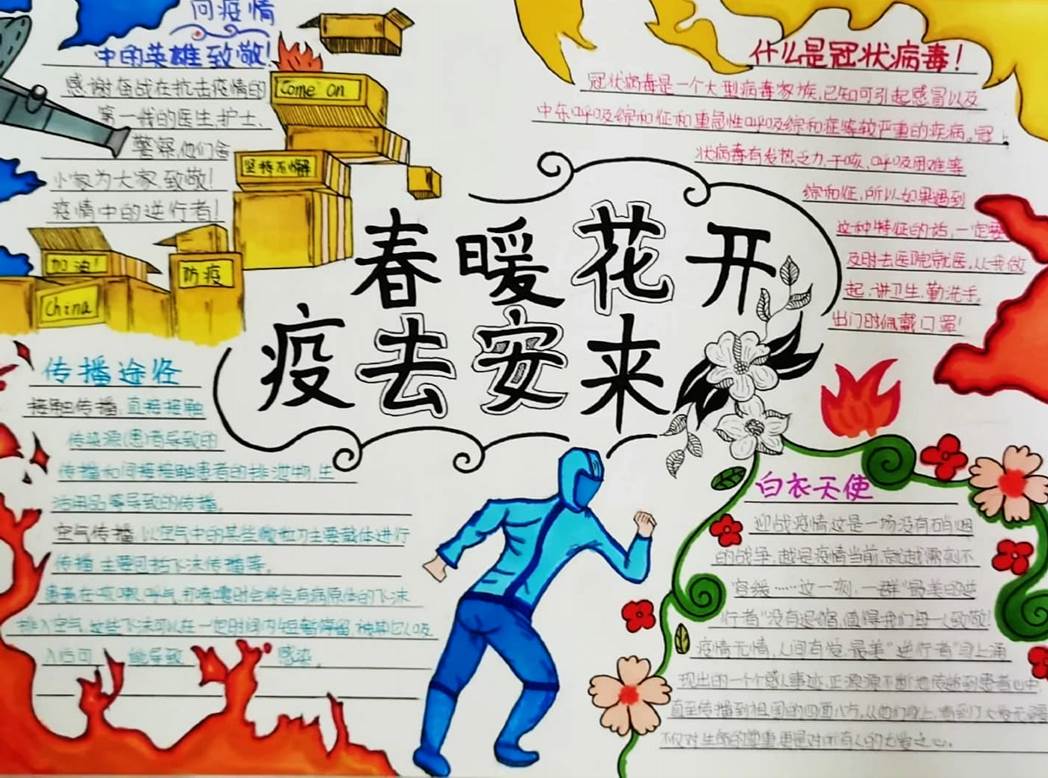 问疫情
中国英雄致敬!
感谢奋战在抗击疫情的
第一线的医生,护士、
警察,他们舍
小家为大家,致敬!
疫情中的逆行者!
Come on
坚持不懈
加油!
防疫
China
什么是冠状病毒!
冠状病毒是一个大型病毒家族,已知可引起感冒以及
中东呼吸综和征和重急性呼吸综和症等较严重的疾病,冠
状病毒有发热乏力,干咳,呼吸困难等
综和征,所以如果遇到
这种特征的话,一定要
及时去医院就医,从我做
起,讲卫生,勤洗手,
出门时佩戴口罩!
春暖花开
疫去安来
传播途径
接触传播,直接接触
传染源(患者导致的
传播和间接接触患者的排泄物,生
活用品等导致的传播。
空气传播,以空气中的某些微粒为主要载体进行
传播主要包括飞沫传播等。
患者在咳嗽,呼气,打喷嚏时会将包有病原体的飞沫
排入空气,这些飞沫可以在一定时间内短暂停留,被其它
导致
感染。
白衣天使
迎战疫情这是一场没有硝烟
的战争,越是疫情当前,就越需刻不
容缓……这一刻,一群"最美的逆
行者"没有退缩,值得我们每一人致敬!
疫情无情,人间有爱,最美"逆行者"身上涌
现出的一个个感人事迹,正源源不断地传递到患者心中,
直至传播到祖国的四面八方,从他们身上,看到了大爱无疆
不仅对生命的尊重更是对所有人的大爱之心。